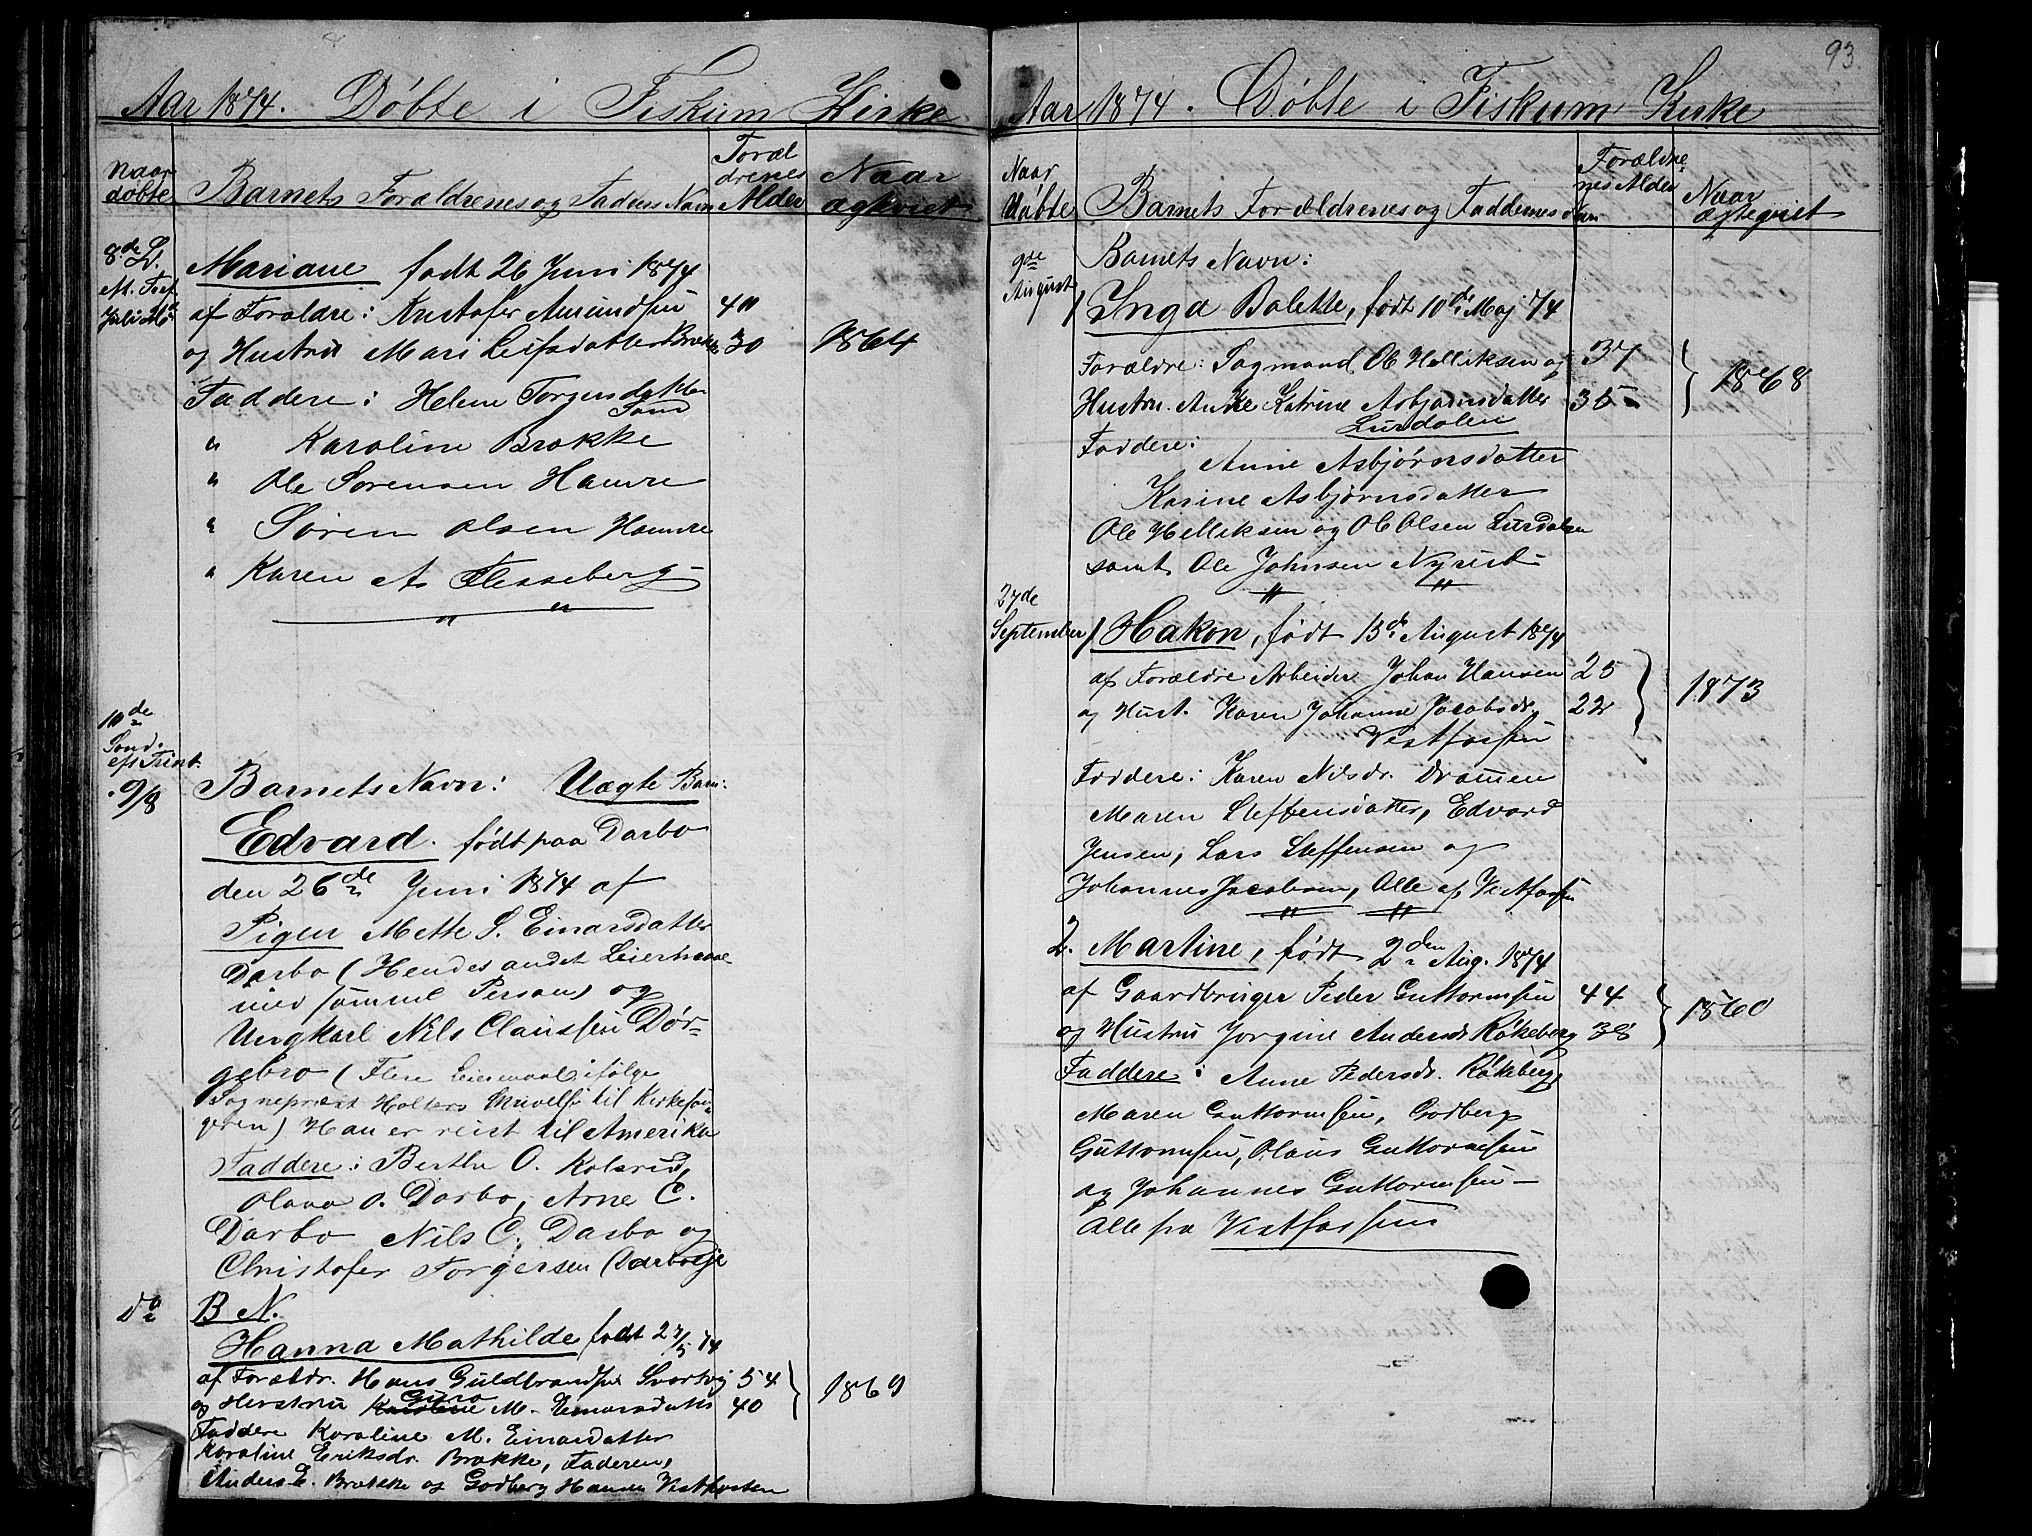 Aar 1874. Døbte i Fiskum Kirke.
Naar døbte
Barnets Forældrenes og Fadernes Navn
Foræl drenes Alder
Naar ægteviet
8de S.
e. Tref.
Juli 26
Mariane født 26 Juni 1874
af Forældre: Kristofer Amundsen 40
og Hustru Mari Leifsdatter Brekke 30 1864
Faddere: Helene Torgersdatter
Sand
" Karoline Brække
" Ole Sørensen Hamre
" Søren Olsen Hamre
" Karen A Flesseberg
10de
Sønd.
eft Trint.
9/8
Barnets Navn: Uægte Barn:
Edvard. født paa Darbo
den 26de Juni 1874 af
Pigen Mette S. Einarsdatter
Darbo (Hendes andet Leiermaal
med samme Person) og
Ungkarl Nils Claussen Dør-
gebro (Flere Leiermaal ifølge
Sognepræst Holters Skrivelse til Kirkesan-
geren) Han er reist til Amerika
Faddere: Berthe O. Kolsrud,
Olava O. Darbo, Arne C.
Darbo Nils C. Darbo og
Christofer Torgersen Darboeje
do
B N.
Hanna Mathilde født 27/5 74
af Forældr. Hans Guldbrandsen Svartvig 54
1869
og Hustru Guro M. Einarsdatter 40
Faddere Karoline M. Einarsdatter
Karoline Eriksdr. Brække, Faderen,
Anders E. Brække og Godberg Hansen Vestfossen
93.
Aar 1874. Døbte i Fiskum Kirke
Naar Døbte
Barnets Forældrenes og Faddernes Navn
Forældre nes Alder
Naar ægteviet
9de
August
Barnets Navn:
1 Inga Bolette, født 10de Maj 74
Forældre: Sagmand Ole Helliksen og 37
1868
Hustru Anne Katrine Asbjørnsdatter 35
Lurdalen
Faddere:
Anne Asbjørnsdatter
Karine Asbjørnsdatter
Ole Helliksen og Ole Olsen Lurdalen
samt Ole Johnsen Nyrud
27de
September
1 Hakon, født 13de August 1874
af Forældre Arbeider Johan Hansen 25
1873
og Hust. Karen Johanne Jacobsdr. 22
Vestfossen
Faddere: Karen Nilsdr. Drammen
Maren Steffensdatter, Edvard
Jensen, Lars Steffensen og
Johannes Jacobsen, Alle af Vestfossen
2. Martine, født 2den Aug. 1874
af Gaardbruger Peder Guttormsen 44
1860
og Hustru Jørgine Andersdr Røkeberg 38
Faddere: Anne Pedersdr. Røkeberg
Maren Guttormsen, Godberg
Guttormsen, Olaus Guttormsen
og Johannes Guttormsen —
Alle fra Vestfossen